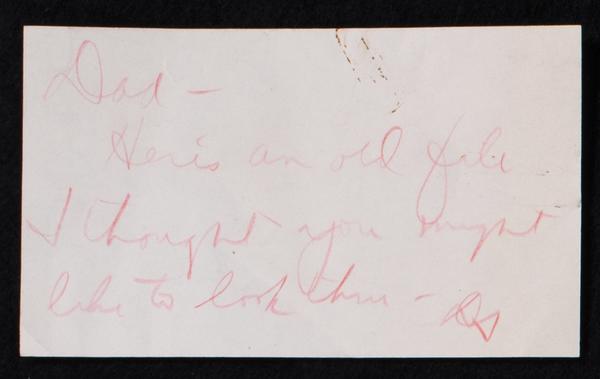 Dad -
Her's an old file
I thought you might
like to look thru -